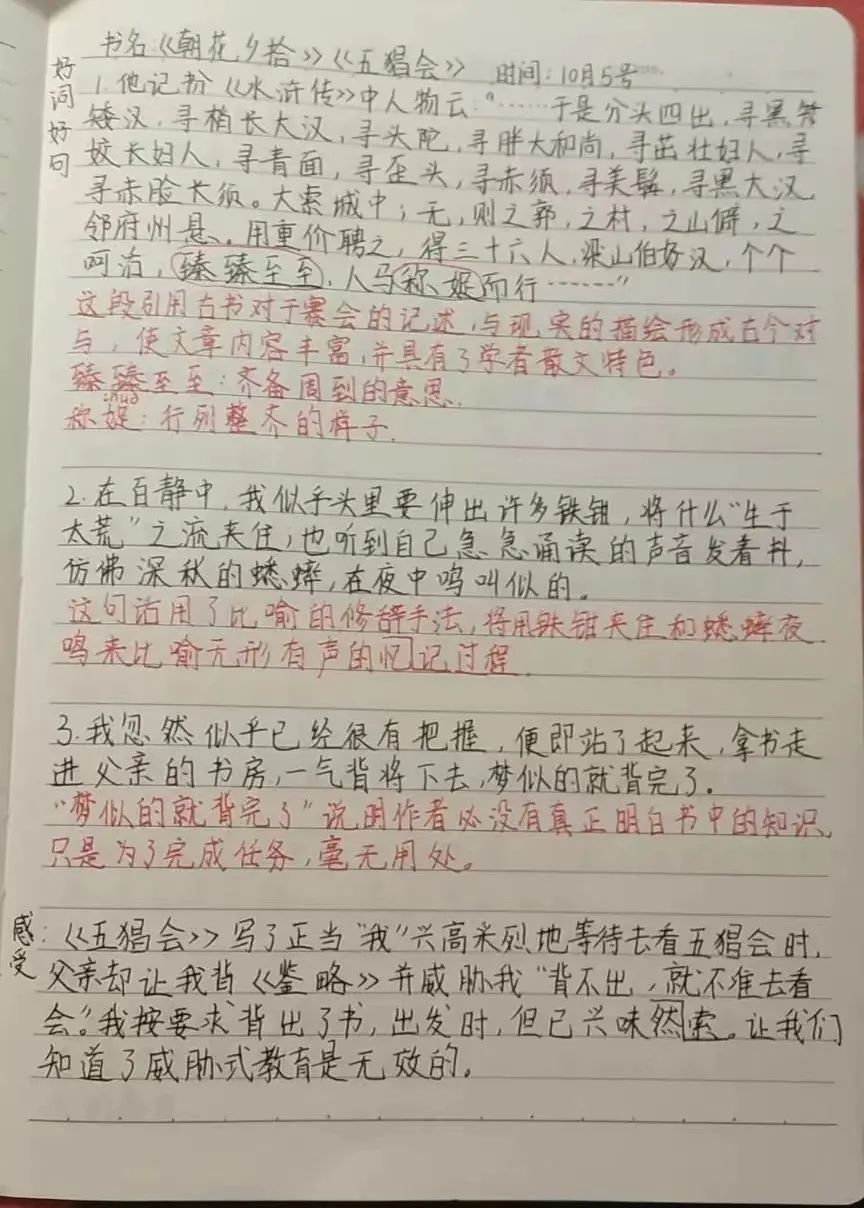 书名《朝花夕拾》《五猖会》 时间:10月5号
好词好句
1.他记扮《水浒传》中人物云:"……于是分头四出,寻黑
矮汉,寻梢长大汉,寻头陀,寻胖大和尚,寻茁壮妇人,寻
姣长妇人,寻青面,寻歪头,寻赤须,寻美髯,寻黑大汉,
寻赤脸长须。大索城中;无,则之郭,之村,之山僻,之
邻府州县。用重价聘之,得三十六人,梁山伯好汉,个个
呵活,臻臻至至,人马称娖而行……"
这段引用古书对于赛会的记述,与现实的描绘形成古今对
与,使文章内容丰富,并具有了学者散文特色。
臻臻至至:齐备周到的意思.
称娖:行列整齐的样子.
2.在百静中,我似乎头里要伸出许多铁钳,将什么"生于
太荒"之流夹住;也听到自己急急诵读的声音发着抖,
仿佛深秋的蟋蟀,在夜中鸣叫似的。
这句话用了比喻的修辞手法,将用铁钳夹住和蟋蟀夜
鸣来比喻无形有声的忆记过程.
3.我忽然似乎已经很有把握,便即站了起来,拿书走
进父亲的书房,一气背将下去,梦似的就背完了。
"梦似的就背完了"说明作者必没有真正明白书中的知识,
只是为了完成任务,毫无用处。
感受:《五猖会》写了正当"我"兴高采烈地等待去看五猖会时,
父亲却让我背《鉴略》并威胁我"背不出,就不准去看
会。"我按要求背出了书,出发时,但已兴味然索。让我们
知道了威胁式教育是无效的。